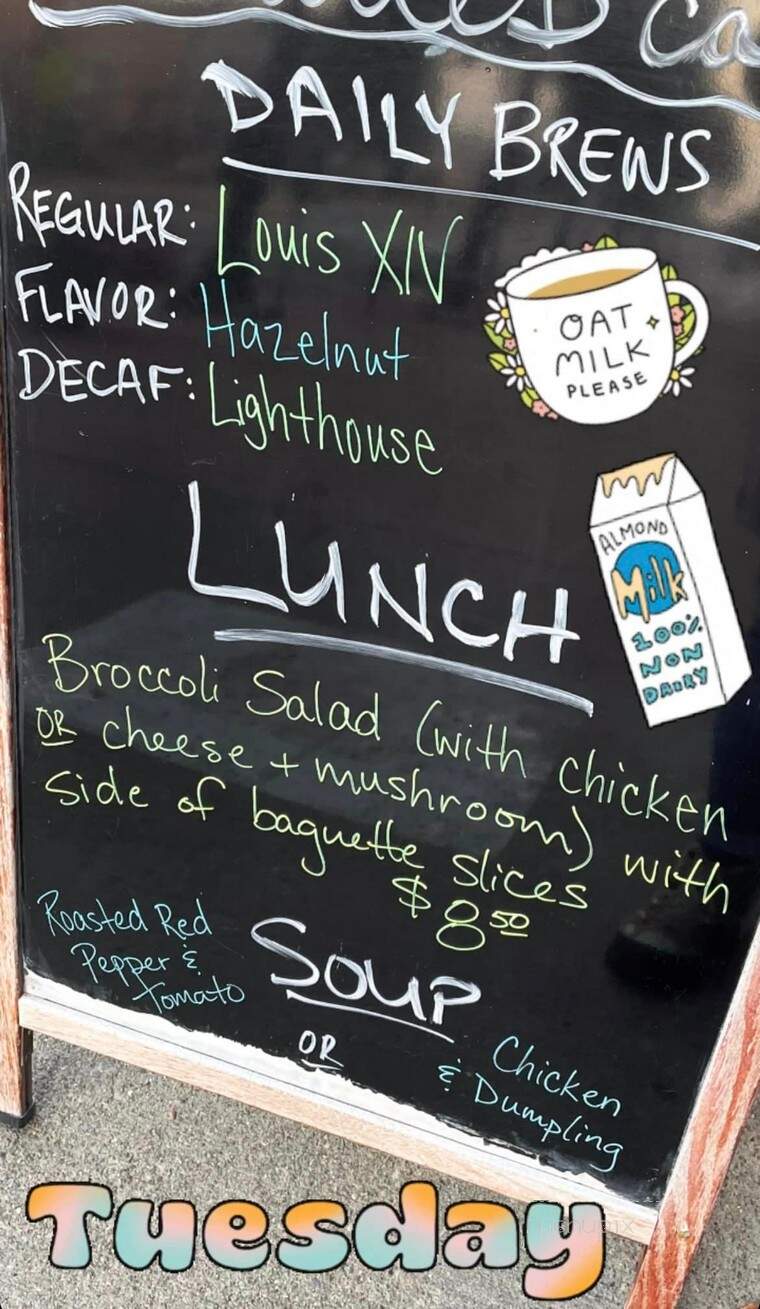 DAILY BREWS
REGULAR: Louis XIV
FLAVOR: Hazelnut
DECAF: Lighthouse
OAT
MILK
PLEASE
ALMOND
Milk
100%
NON
DAIRY
LUNCH
Broccoli Salad (with chicken
OR cheese + mushroom) with
side of baguette slices
$8.50
SOUP
Roasted Red
Pepper &
Tomato
OR
Chicken
& Dumpling
Tuesday